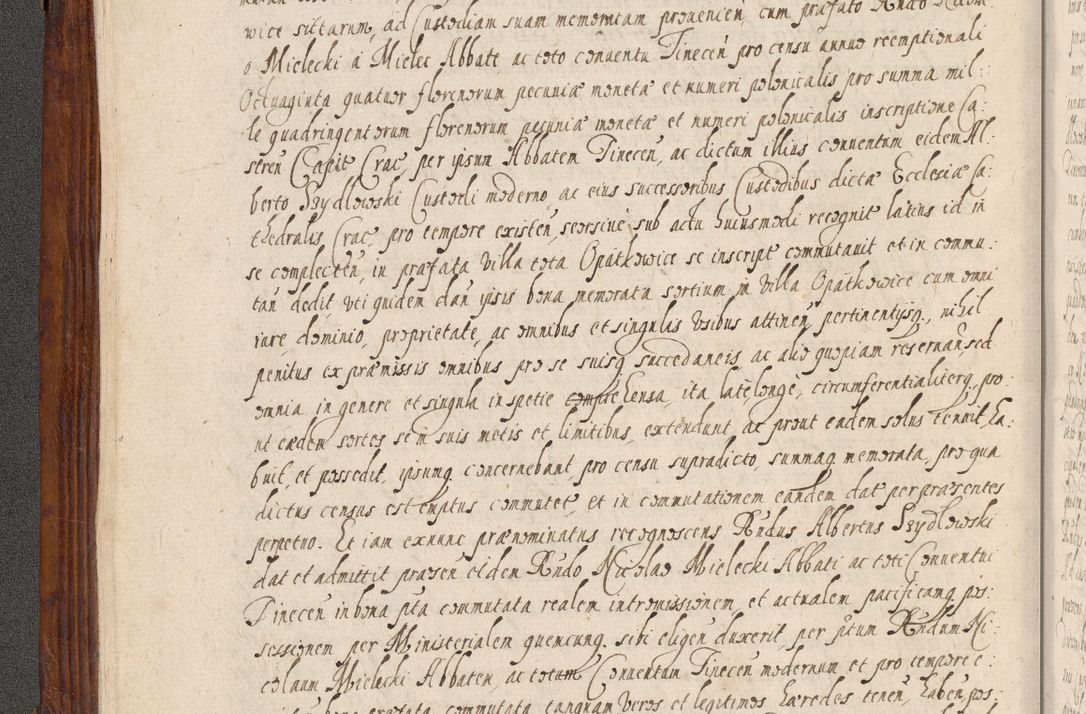 wice sittarum, ad Custodiam suam memoratam prouenien, cum præfato Rndo
o Mielecki à Mielec Abbate ac toto conuentu Tinecen pro censu annuo reemptionali
Octuaginta quatuor florenorum pecuniæ monetæ et numeri polonicalis pro summa mil:
le quadringentorum florenorum pecuniæ monetæ et numeri polonicalis inscriptione Ca:
stren Capit Crac, per ipsum Abbatem Tinecen, ac dictum illius conuentum eidem Al:
berto Szydlowski Custodi moderno, ac eius successoribus Custodibus dictæ Ecclesiæ Ca:
thedralis Crac, pro tempore existen, seorsiue sub actu huiusmodi recognit latius id in
se complecten, in præfata Villa tota Opatkowice se inscript commutauit et in commu:
tan dedit, vti quidem dan ipsis bona memorata sortium in Villa Opatkowice cum omni
iure, dominio, proprietate, ac omnibus et singulis Vsibus attinen, pertinentijsq, nihil
penitus ex præmissis omnibus pro se suisq succedaneis, ac alio quopiam reseruan, sed
omnia in genere et singula in spetie comprehensa, ita latè, longè, circumferentialiterq, pro:
ut eædem sortes se in suis metis et limitibus, extendunt ac prout eadem solus tenuit, Ha:
buit, et possedit, ipsumq concernebant, pro censu supradicto, summaq memorata, pro qua
dictus census est emptus commutet, et in commutationem eandem dat per præsentes
perpetuo. Et iam exnunc prænominatus recognoscens Rndus Albertus Szydlowski
dat et admittit præsen eidem Rndo Nicolao Mielecki Abbati ac toti Conuentui
Tinecen in bona pta commutata realem intromissionem, et actualem pacificamq pos:
sessionem per Ministerialem quemcunq sibi eligen duxerit, per ptum Rndum Ni:
colaum Mielecki Abbatem, ac totum Conuentum Tinecen modernum et pro tempore e:
bona præfata commutata tanquam Veros et legitimos hæredes tenen, haben pos: